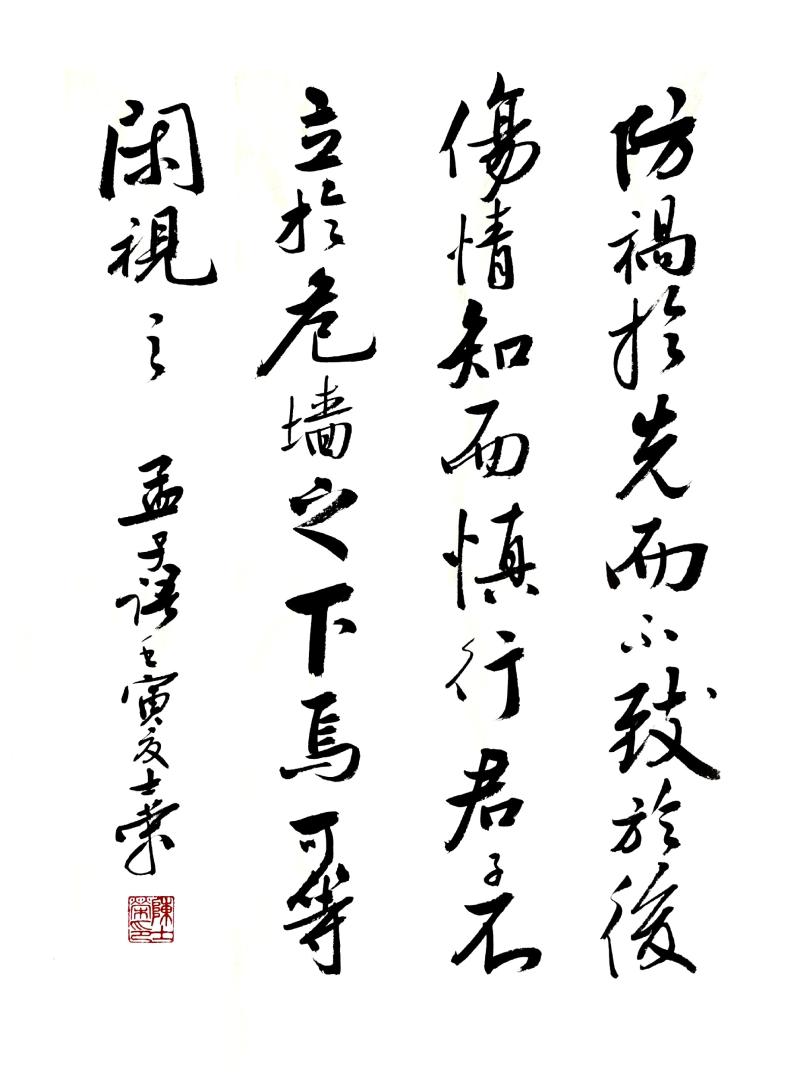 防禍於先而不致於後
傷情知而慎行君子不
立於危墙之下焉可等
閑視之
孟子語壬寅夏士榮
陳士榮印